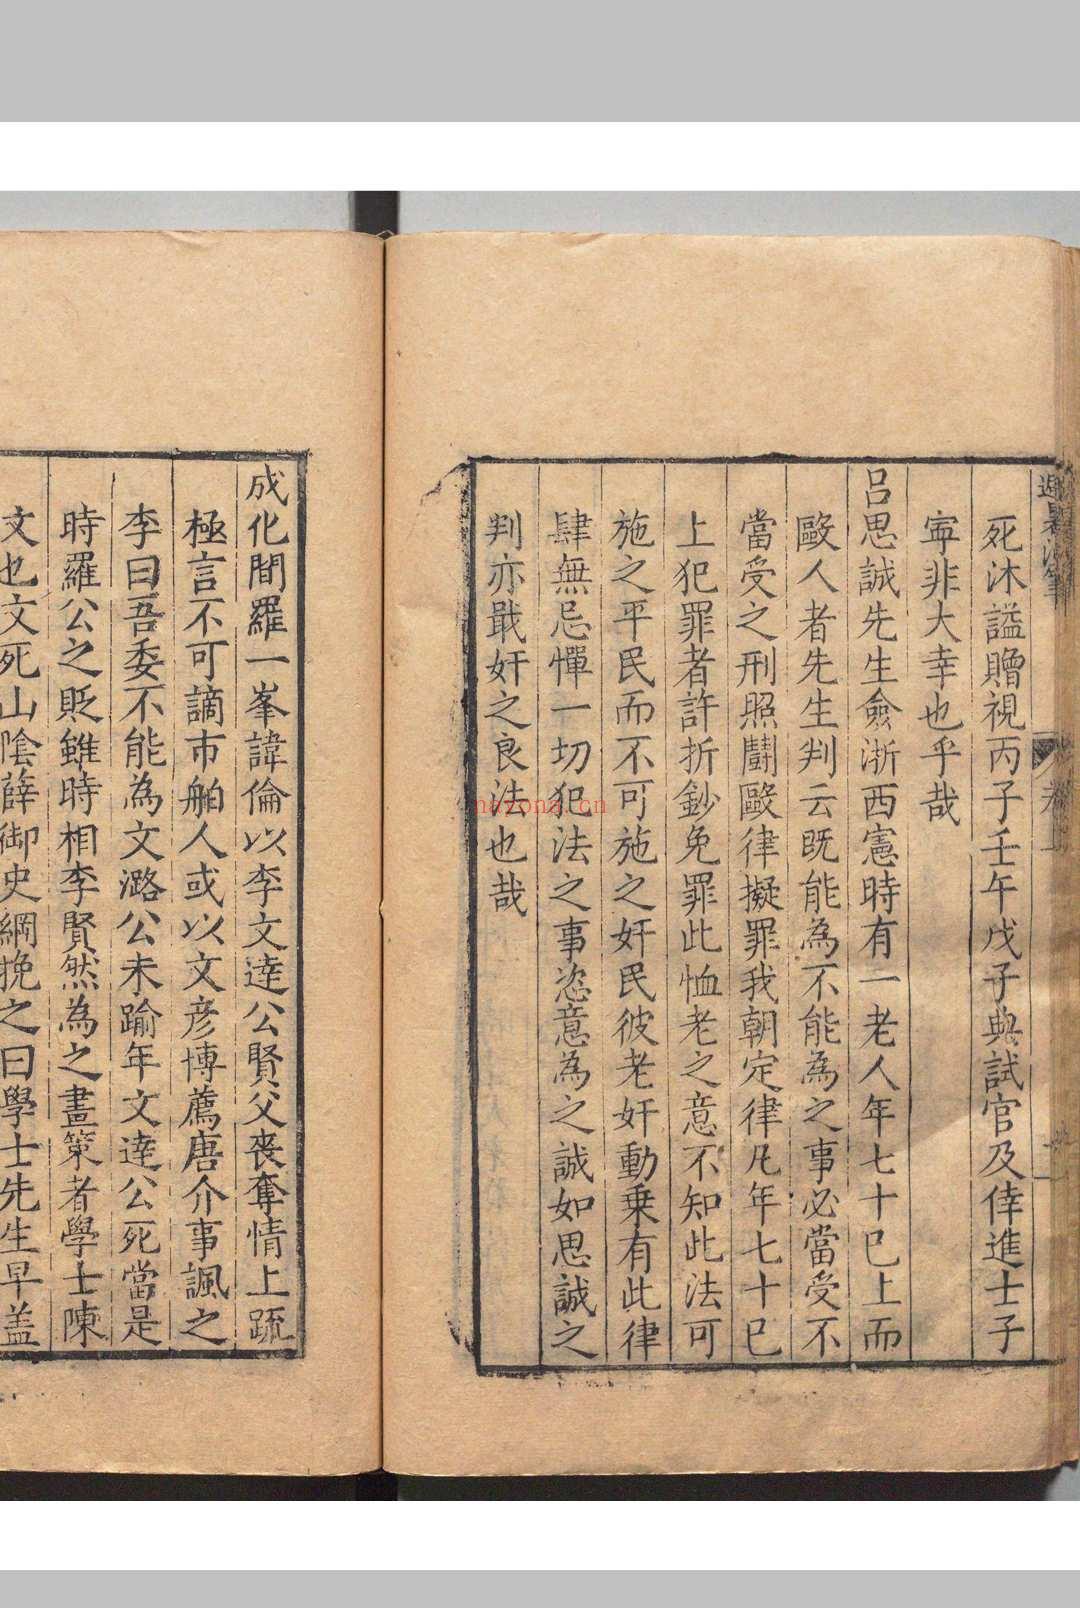 死沐謚贈視丙子壬午戊子典試官及倖進士子
寧非大幸也乎哉
呂思誠先生僉浙西憲時有一老人年七十已上而
毆人者先生判云既能為不能為之事必當受不
當受之刑照鬪毆律擬罪我朝定律凡年七十已
上犯罪者許折鈔免罪此恤老之意不知此法可
施之平民而不可施之奸民彼老奸動乗有此律
肆無忌憚一切犯法之事恣意為之誠如思誠之
判亦戢奸之良法也哉
成化間羅一峯諱倫以李文逹公賢父丧奪情上䟽
極言不可謫市舶人或以文彦博薦唐介事諷之
李曰吾委不能為文潞公未踰年文逹公死當是
時羅公之貶雖時相李賢然為之畫策者學士陳
文也文死山隂薛御史綱挽之曰學士先生早盖
nayona.cn